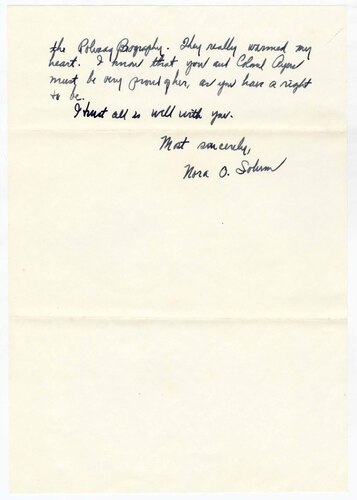 the Biography. They really warmed my
heart. I know that you and Colonel Ayer
must be very proud of her, as you have a right
to be.
I trust all is well with you.
Most sincerely,
Nora O.